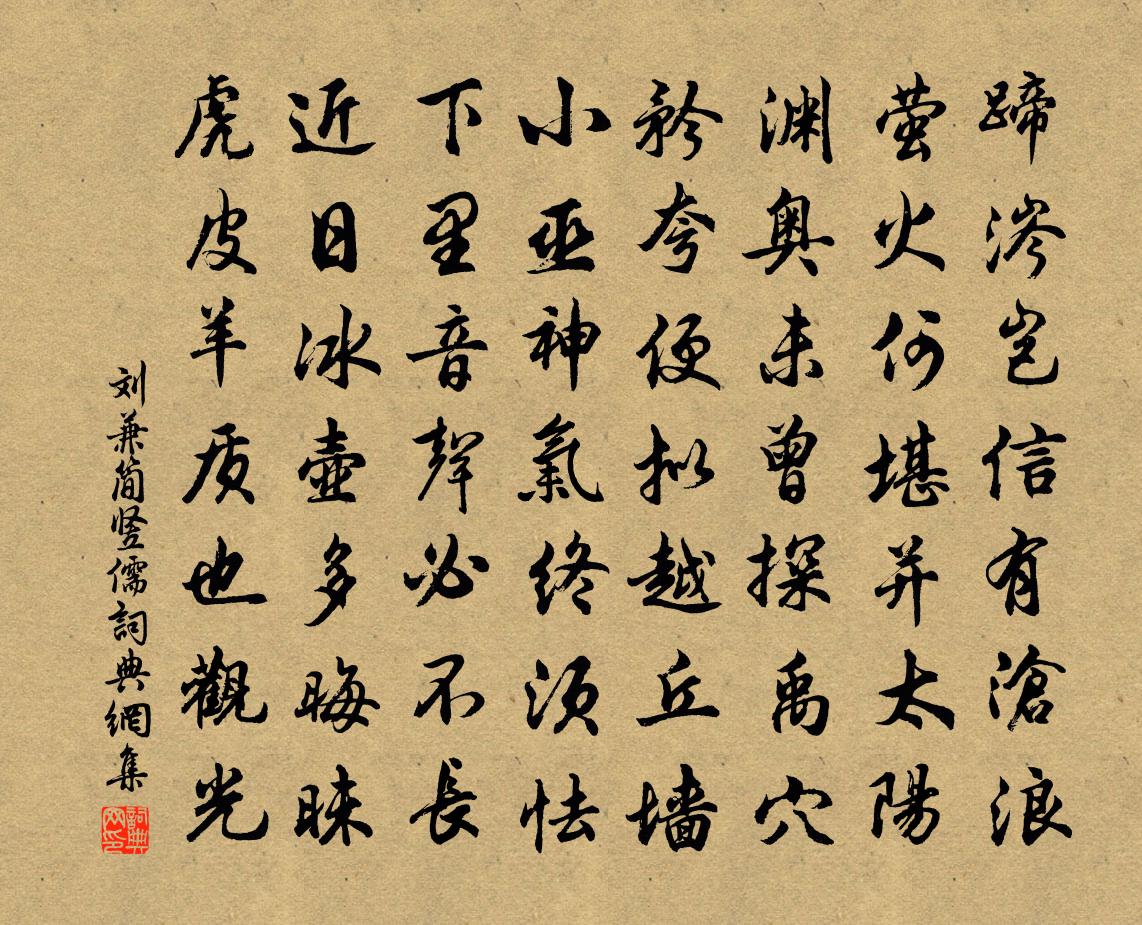 蹄涔岂信有滄浪
萤火何堪并太陽
渊奥未曾探禹穴
矜夸便拟越丘墙
小巫神氣終須怯
下里音聲必不長
近日冰壶多晦昧
虎皮羊质也觀光
刘兼简竖儒詞典網集
詞典网印